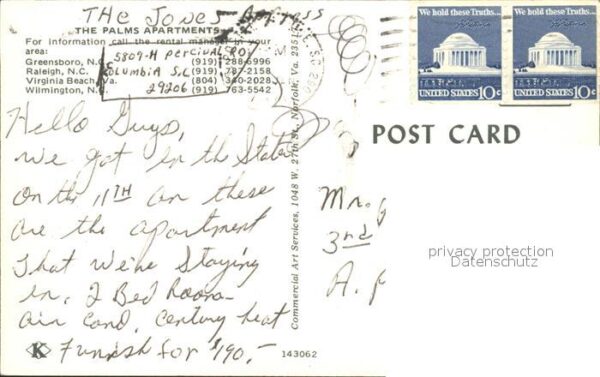 THe Jones Apt 1435
THE PALMS APARTMENTS
For information call the rental manager in your
area:
Greensboro, N.C. (919) 288-6996
Raleigh, N.C. (919) 787-2158
Virginia Beach, Va. (804) 340-2028
Wilmington, N.C. (919) 763-5542
5809-H Percival RD
Columbia S.C
29206
Hello Guys,
We got in the States
on the 11TH an these
are the apartment
that we're staying
in, 2 Bed Room
air cond, century heat
Funish for $190,-
K
143062
Commercial Art Services, 1048 W. 27th St., Norfolk, Va. 23517
We hold these Truths...
UNITED STATES 10c
We hold these Truths...
UNITED STATES 10c
POST CARD
Mr.
3rd
A.
privacy protection
Datenschutz